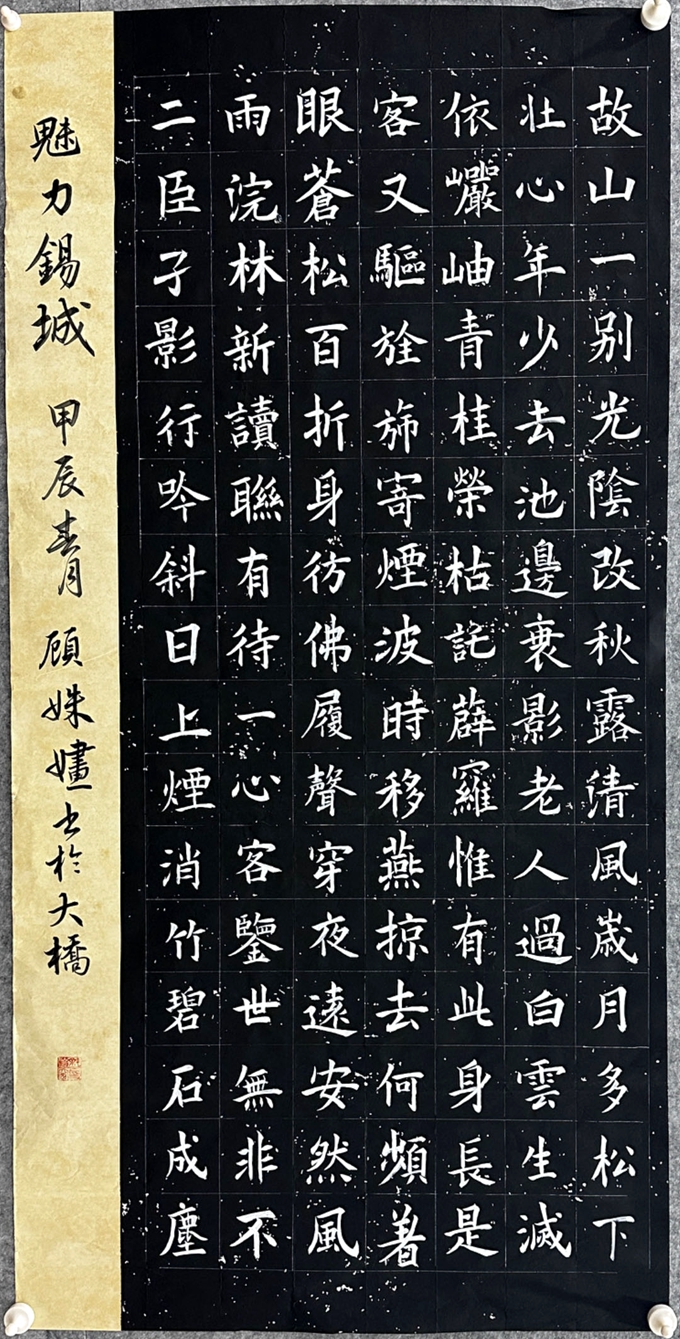 故山一别光陰改秋露清風歲月多松下
壯心年少去池邊衰影老人過白雲生滅
依巖岫青桂榮枯託薜蘿惟有此身長是
客又驅旌旆寄煙波時移燕掠去何頻着
眼蒼松百折身彷佛履聲穿夜遠安然風
雨浣林新讀聯有待一心客鑒世無非不
二臣孑影行吟斜日上煙消竹碧石成塵
魅力錫城 甲辰青月 顾姝嫿书於大橋